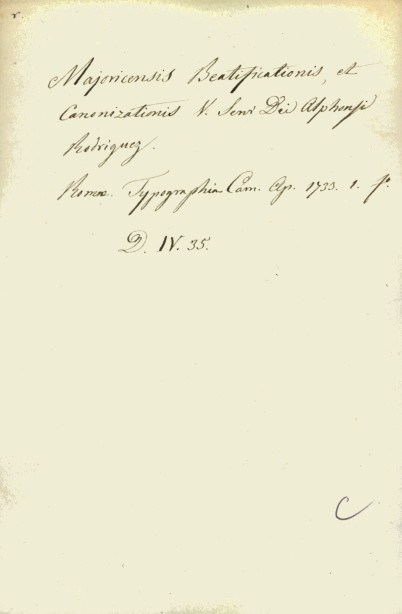 r.
Majoricensis Beatificationis, et
Canonizationis V. Servi Dei Alphonsi
Rodriguez.
Romæ. Typographia Cam. Ap. 1733. 1. fº.
D. IV. 35.
C